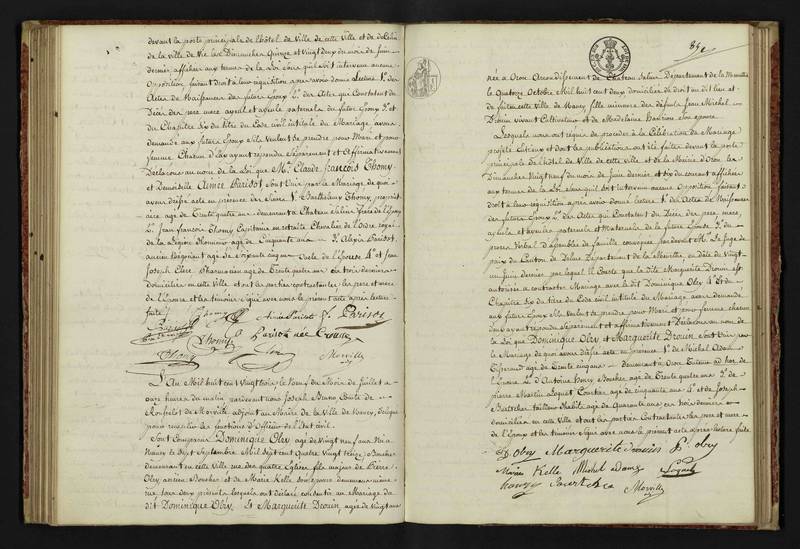 devant la porte principale de l'hôtel de Ville de cette Ville et de celui
de la ville de Vic les Dimanches Quinze et Vingt deux du mois de Juin
dernier, affichés aux termes de la Loi sans qu'il soit intervenu aucune
Opposition, faisant droit à leur réquisition après avoir donné lecture 1.° des
Actes de Naissances des futurs Epoux 2.° des Actes qui constatent le
Décès des père mère ayeul et ayeule paternels du futur Epoux 3.° et
du Chapitre Six du titre du Code civil intitulé du Mariage, avons
demandé aux futurs Epoux s'ils veulent se prendre pour Mari et pour
femme Chacun d'eux ayant répondu Séparément et Affirmativement
Déclarons au nom de la Loi que Mr. Claude François Thomy
et Demoiselle Aimée Parisot Sont Unis par le Mariage de quoi
avons dressé acte en présence des Sieurs 1.° Barthélemy Thomy, propriét
aire âgé de Trente quatre ans demeurant à Chateau Salins Frère de l'Epoux
2.° Jean François Thomy Capitaine en retraite Chevalier de l'Ordre royal
de la Légion d'honneur âgé de Cinquante ans 3.° Alexis Parisot,
ancien Négociant âgé de Soixante cinq ans Oncle de l'Epouse 4.° et Jean
Joseph Pharmacien âgé de Trente quatre ans les trois derniers
domiciliés en cette Ville et ont les parties contractantes, les père et mère
de l'Epouse et les témoins signé avec nous le présent acte après lecture
faite
Thomy Aimée Parisot Parisot
Thomy Parisot née
Thomy Morville
L'An Mil huit cent Vingt trois le neuf du Mois de Juillet à
onze heures du matin pardevant nous Joseph Bruno Comte de
Morville adjoint au Maire de la Ville de Nancy, délégué
pour remplir les fonctions d'Officier de l'Etat civil
Sont Comparus Dominique Olry âgé de Vingt neuf ans Né à
Nancy le Sept Septembre Mil Sept cent Quatre Vingt treize, Boucher
demeurant en cette Ville rue des quatre Eglises fils majeur de Pierre
Olry, ancien Boucher et de Marie Kelle son épouse demeurant même
rue tous deux présents lesquels ont déclaré consentir au Mariage du
dit Dominique Olry, Et Marguerite Drouin, agée de Vingt ans
née à Oron Arrondissement de Chateau Salins Département de la Meurthe
le Quatorze Octobre Mil huit cent deux domiciliée de droit au dit lieu et
de fait en cette Ville de Nancy, fille mineure des défunts Jean Michel
Drouin vivant Cultivateur et de Madelaine son épouse
Lesquels nous ont requis de procéder à la Célébration du Mariage
projeté entr'eux et dont les publications ont été faites devant la porte
principale de l'hôtel de Ville de cette Ville et de la Mairie d'Oron les
Dimanches Vingt neuf du mois de Juin dernier et Six du courant affichées
aux termes de la Loi, Sans qu'il soit intervenu aucune Opposition faisant
droit à leur réquisition après avoir donné lecture 1.° des Actes de Naissances
des futurs Epoux 2.° des Actes qui constatent le Décès des père, mère,
ayeuls et ayeules paternels et Maternels de la future Epouse 3.° du
procès Verbal d'Assemblée de famille convoquée pardevant Mr. le Juge de
paix du Canton de Delme Département de la Meurthe, en date du Vingt
un Juin dernier par lequel il Conste que la dite Marguerite Drouin est
autorisée à contracter Mariage avec le dit Dominique Olry 4.° Et du
Chapitre Six du titre du Code civil intitulé du Mariage avons demandé
aux futurs Epoux S'ils veulent se prendre pour Mari et pour femme chacun
d'eux ayant répondu Séparément et affirmativement Déclarons au nom de
la Loi que Dominique Olry et Marguerite Drouin Sont Unis par
le Mariage de quoi avons dressé acte en présence 1.° de Michel Adam
âgé de Trente cinq ans demeurant à Oron
de l'Epouse 2.° d'Antoine Boucher âgé de Trente quatre ans 3.° de
pierre Martin âgé de cinquante ans 4.° et de Joseph
tailleur d'habits âgé de Quarante ans les trois derniers
domiciliés en cette Ville et ont les parties Contractantes les père et mère
de l'Epoux et les témoins signé avec nous le présent acte après lecture faite
D. Olry Marguerite Drouin P. Olry
Marie Kelle Michel Adam
Morville